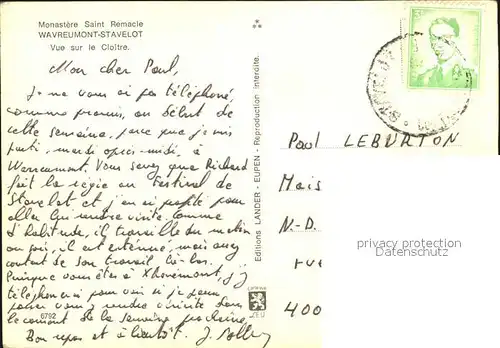 Monastère Saint Remacle
WAVREUMONT-STAVELOT
Vue sur le Cloître.
Mon cher Paul,
Je ne vous ai pas téléphoné,
comme promis, au début de
cette semaine, parce que je suis
parti mardi après-midi, à
Wavreumont. Vous savez que Richard
fait la régie au Festival de
Stavelot et j'en ai profité pour
aller lui rendre visite. Comme
d'habitude, il travaille du matin
au soir, il est exténué, mais assez
content de son travail là-bas.
Puisque vous êtes à Xhovémont, j'y
téléphonerai pour voir si je peux
passer vous rendre visite dans
le courant de la semaine prochaine.
Bon repos et à bientôt. J.
6792
Editions LANDER - EUPEN - Reproduction interdite.
LEU
STAVELOT
Paul LEBURTON
Mais
N.-D.
rue
400
privacy protection
Datenschutz